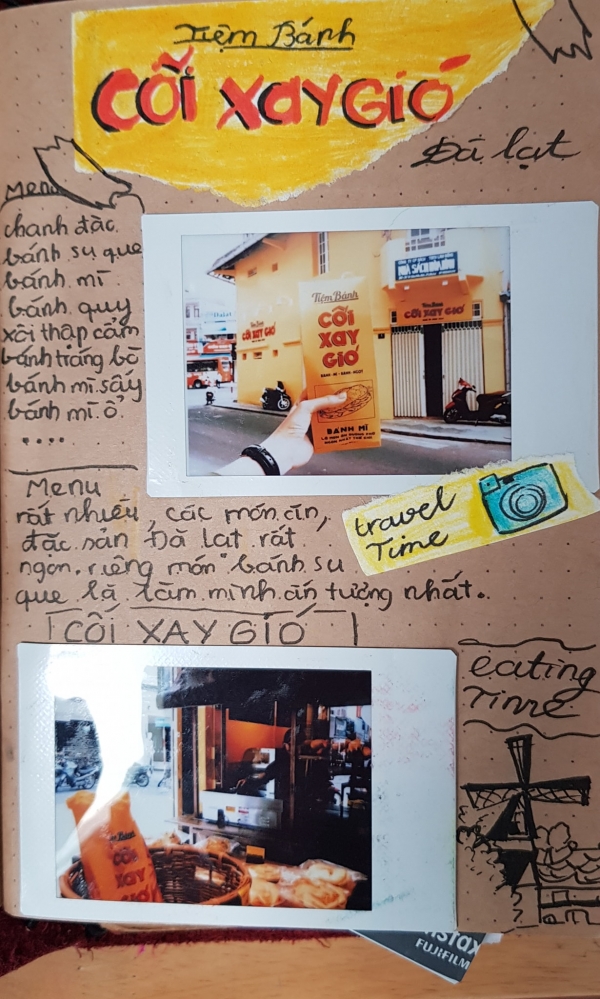 Tiệm Bánh
CỐI XAY GIÓ
Đà lạt
Menu
chanh đác
bánh su que
bánh mì
bánh quy
xôi thập cẩm
bánh tráng bò
bánh mì sấy
bánh mì ổ
....
Tiệm Bánh
CỐI
XAY
GIÓ
BÁNH MÌ - BÁNH NGỌT
BÁNH MÌ
CỐI XAY GIÓ
NHÀ SÁCH HÒA BÌNH
CỐI XAY GIÓ
Menu
rất nhiều, các món ăn,
đặc sản Đà Lạt rất
ngon, riêng món bánh su
que là làm mình ấn tượng nhất.
travel
Time
CỐI XAY GIÓ
Tiệm Bánh
CỐI
XAY
GIÓ
eating
Time
instax
FUJIFILM